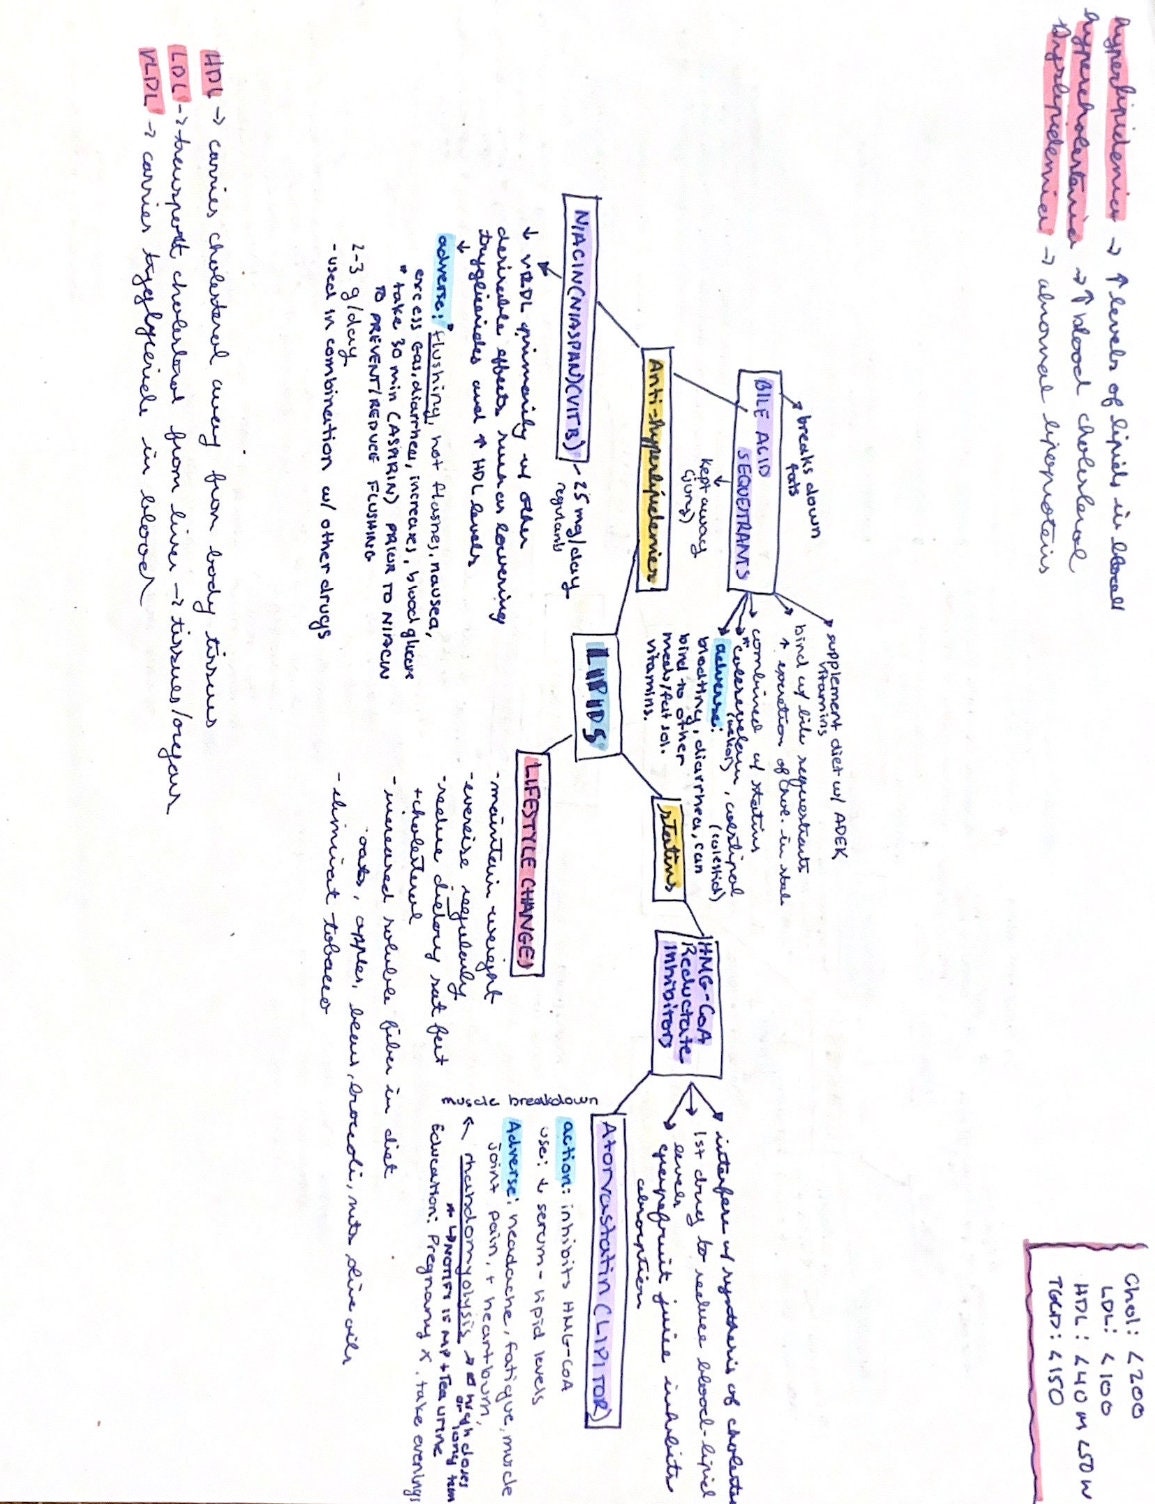 hyperlipidemia → ↑ levels of lipids in blood
hypercholesterolemia → ↑ blood cholesterol
Dyslipidemia → abnormal lipoproteins
Chol: <200
LDL: <100
HDL: <40 M <50 W
<150
breaks down
fats
BILE ACID
SEQUESTRANTS
kept away
supplement diet w/ ADEK
vitamins
bind w/ bile sequestrants
↑ excretion of chol. in stool
combined w/ statins
* colesevelam, colestipol
(welchol) (colestid)
adverse:
bloating, diarrhea, can
bind to other
meds/fat sol.
vitamins.
Anti-hyperlipidemics
NIACIN(NIASPAN)(VIT B) - 25 mg/day
↓ VLDL primarily w/ other
desirable effects such as lowering
tryglicerides and ↑ HDL levels
adverse: * flushing, hot flashes, nausea,
excess gas, diarrhea, increases, blood glucose
* take 30 min (ASPIRIN) PRIOR TO NIACIN
TO PREVENT/REDUCE FLUSHING
2-3 g/day
- used in combination w/ other drugs
LIPIDS
statins
HMG-CoA
Reductate
inhibitors
interfere w/ synthesis of
1st drug to reduce blood-lipid
levels
grapefruit juice inhibits
absorption
Atorvastatin (LIPITOR)
action: inhibits HMG-CoA
use: ↓ serum-lipid levels
Adverse: headache, fatigue, muscle
joint pain, + heartburn,
muscle breakdown
← rhabdomyolysis → high doses
or long term
** ↳ NOTIFY IF MP + Tea urine
Education: Pregnancy X, take evenings
LIFESTYLE CHANGES
- maintain weight
- exercise regularly
- reduce dietary sat fat
+ cholesterol
- increased soluble fiber in diet
· oats, apples, beans, broccoli, nuts olive oils
- eliminat tobacco
HDL → carries cholesterol away from body tissues
LDL → transport cholesterol from liver → tissues/organs
VLDL → carries tryglyceride in blood